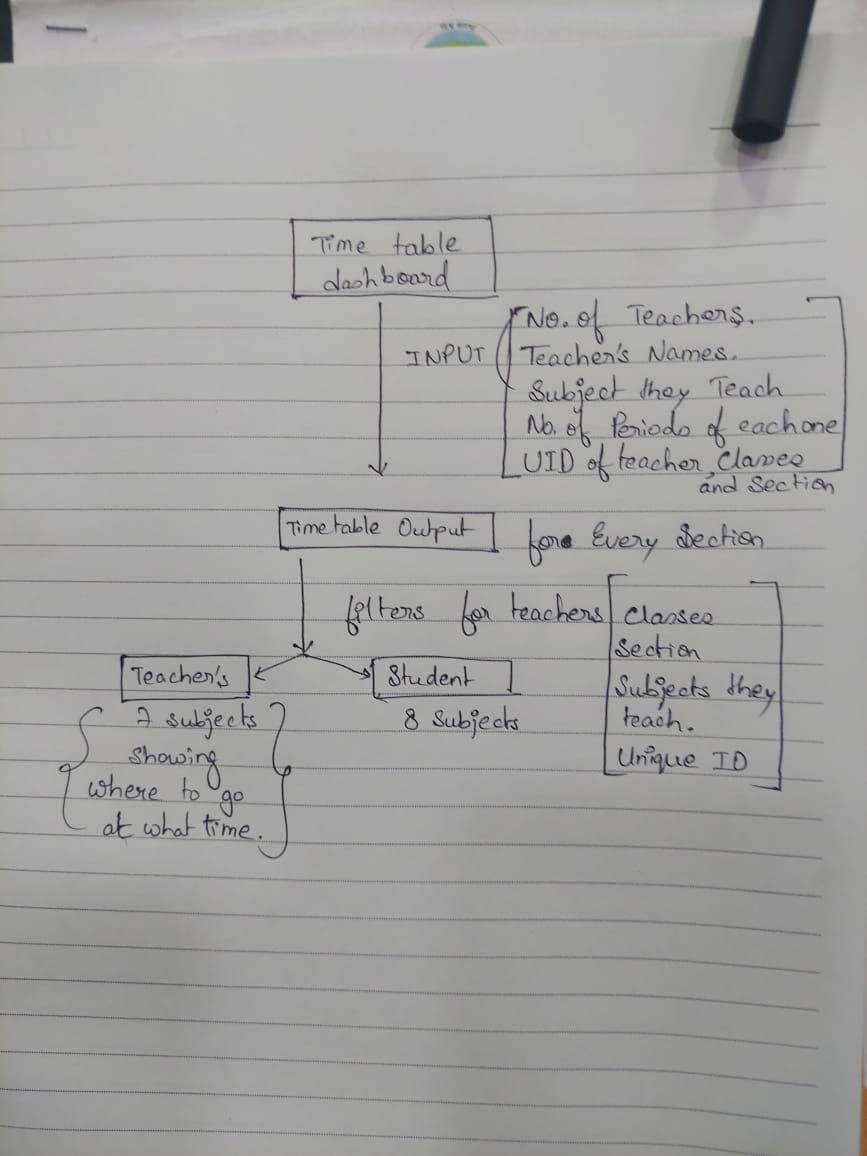 Time table
dashboard
INPUT
No. of Teachers.
Teacher's Names.
Subject they Teach
No. of Periods of each one
UID of teacher, Classes
and Section
Timetable Output
for Every Section
filters for teachers
Classes
Section
Subjects they
teach.
Unique ID
Teacher's
7 subjects
showing
where to go
at what time.
Student
8 Subjects